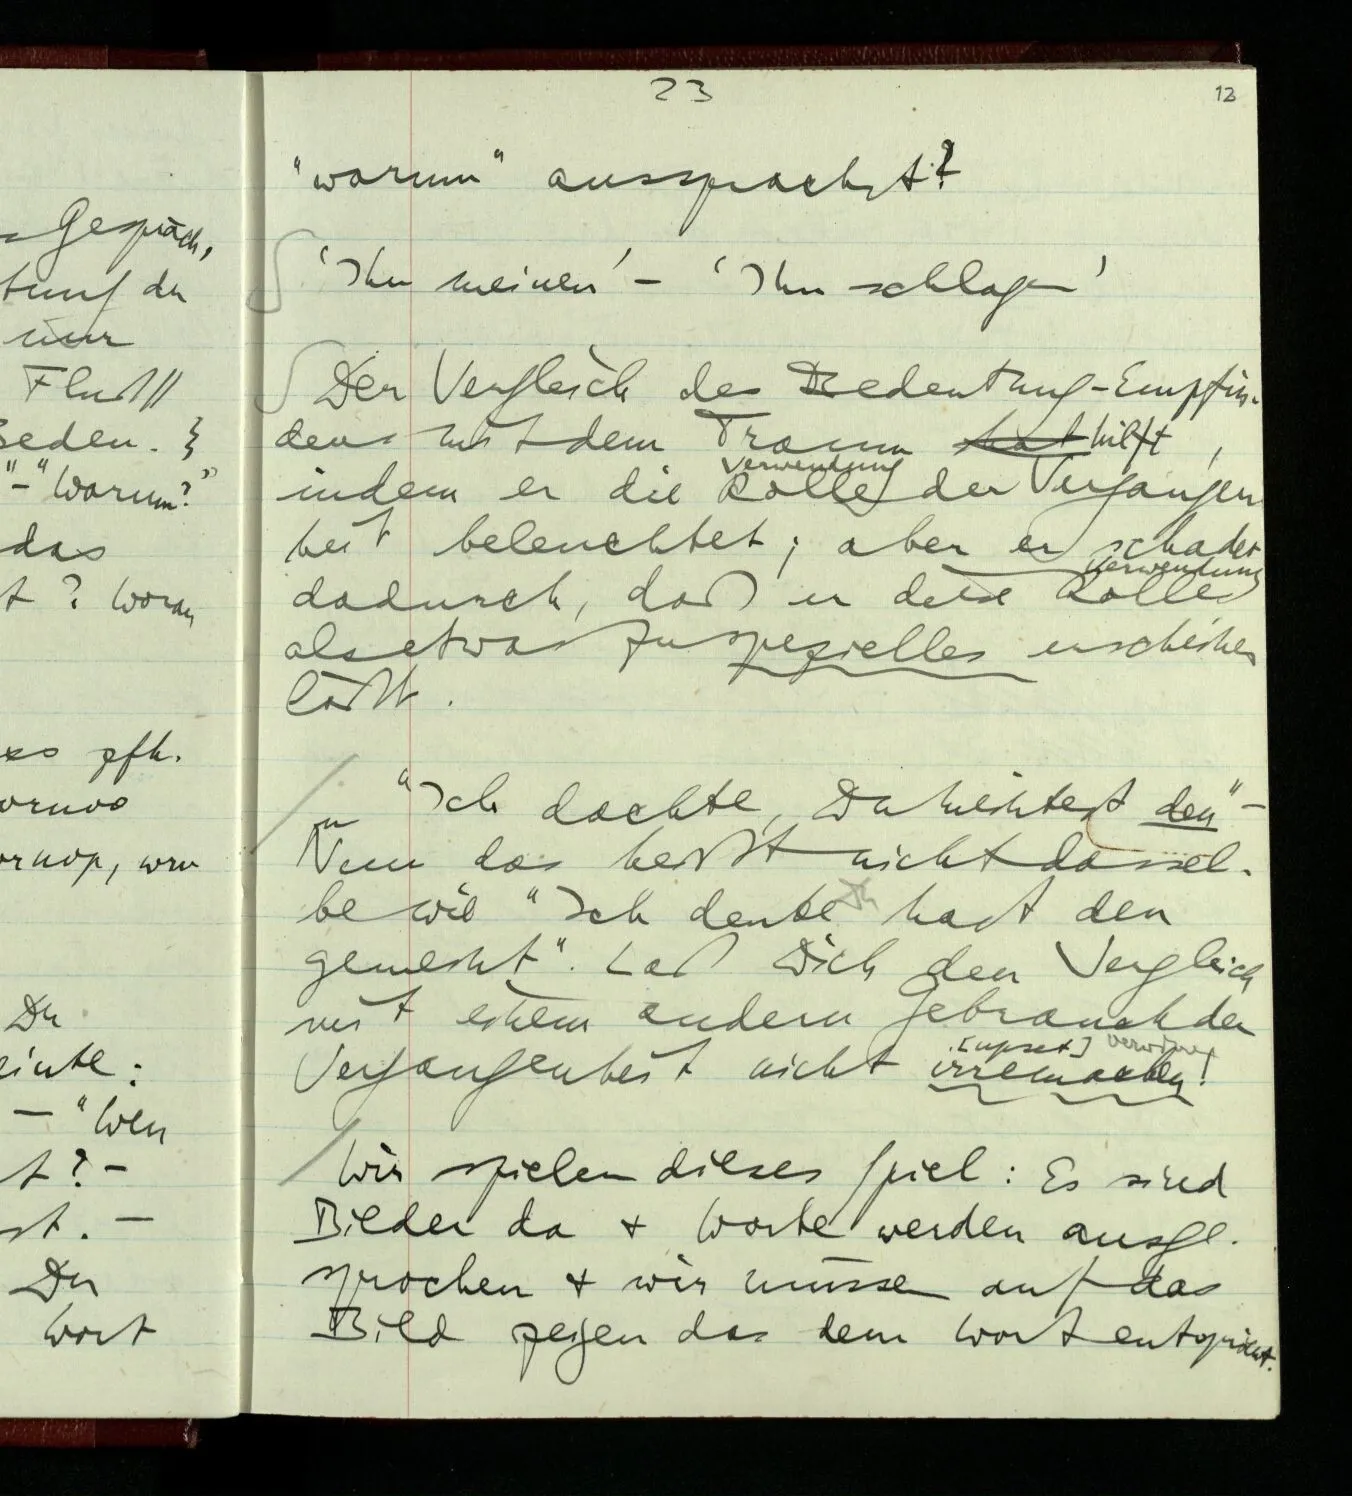 23
12
Gespräch,
der
nur
Fluß //
Beden. }
" – "Warum?"
das
t? Woran
so pfh.
ornoo
ornop, wrn
Du
einte:
– "Wen
t? –
st. –
Du
Wort
"warum" aussprachst?
'Ihn meinen' – 'Ihn schlagen'
Der Vergleich des Bedeutung-Empfin-
dens mit dem Traum hat hilft,
Verwendung
indem er die Rolle der Vergangen
heit beleuchtet; aber er schadet
Verwendung
dadurch, daß er diese Rolle
als etwas zu spezielles erscheinen
läßt.
"Ich dachte, Du meintest den" –
Nun das heißt nicht dassel-
be wie "Ich denke Du hast den
gemeint". Laß Dich den Vergleich
mit einem andern Gebrauch der
[upset] verwirren
Vergangenheit nicht irremachen!
Wir spielen dieses Spiel: Es sind
Bilder da & Worte werden ausge-
sprochen & wir müssen auf das
Bild zeigen das dem Wort entspricht.